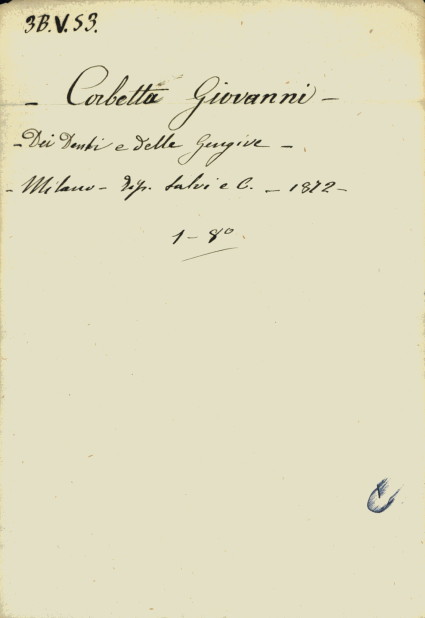 3B.V.53.
- Corbetta Giovanni -
- Dei Denti e delle Gengive -
- Milano - Tip. Salvi e C. - 1872 -
1 - 8º